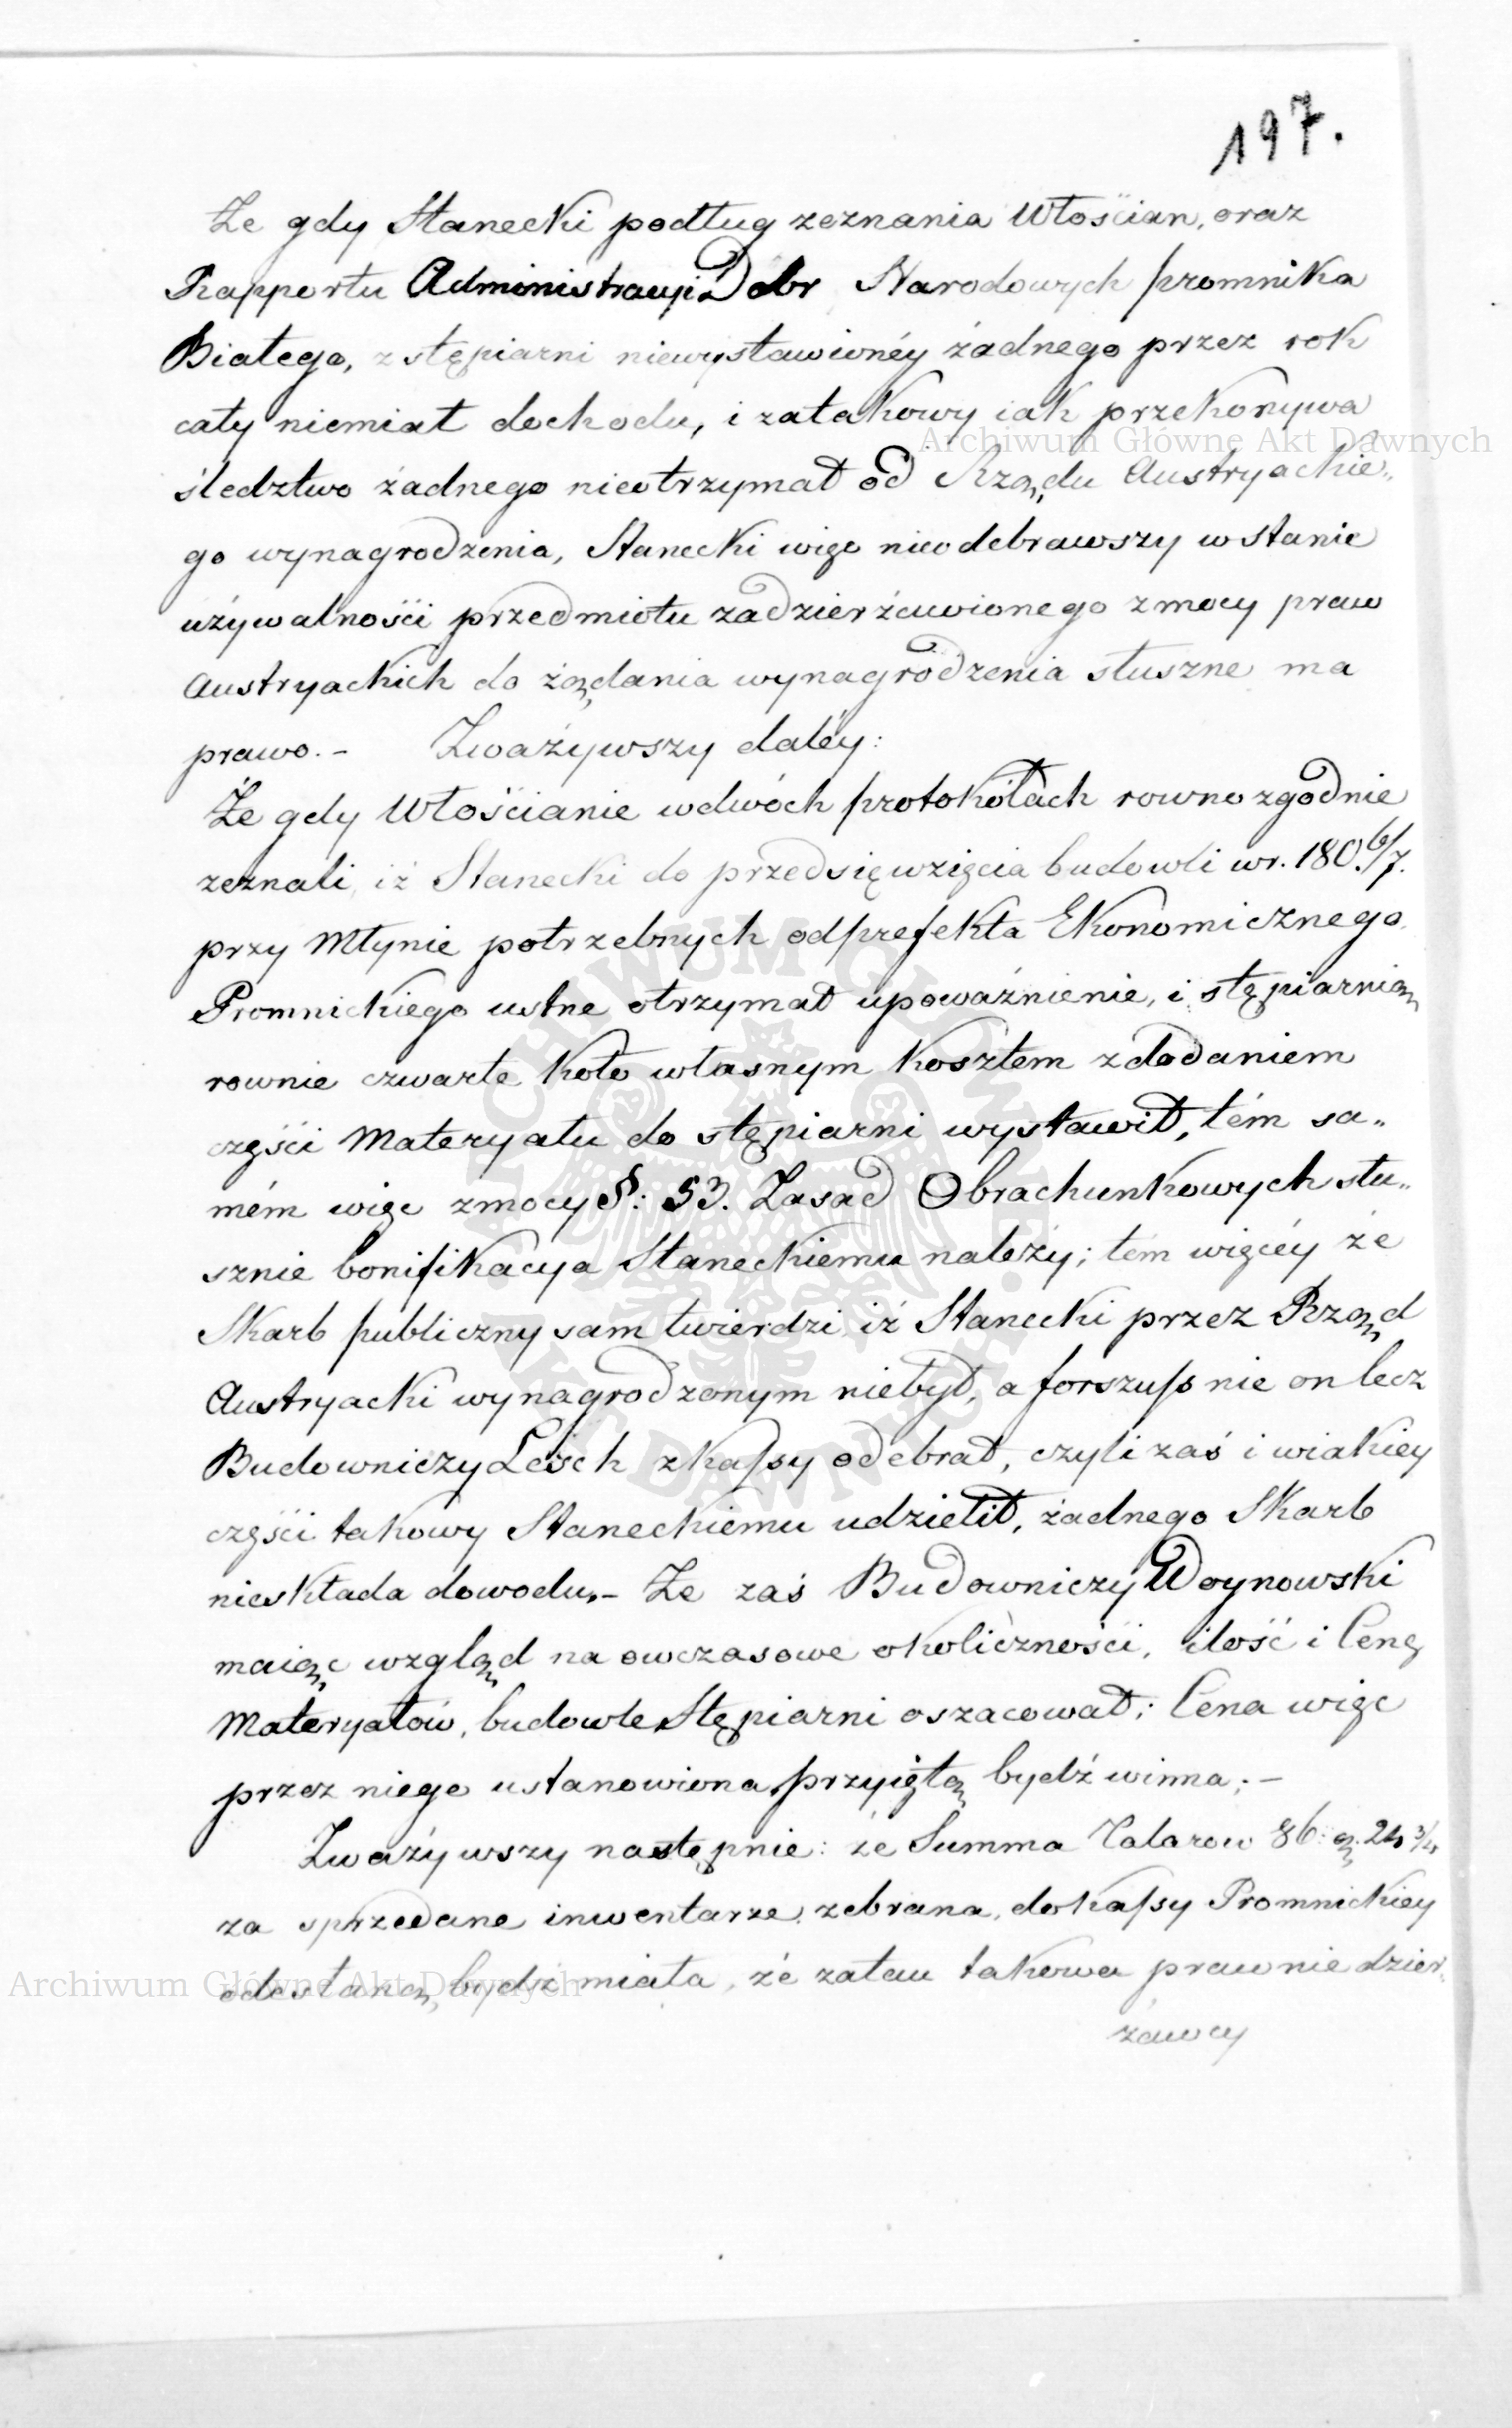 197.
Że gdy Stanecki podług zeznania Włościan, oraz
Rapportu Administracyi Dobr Narodowych promnika
Białego, z stępiarni niewystawionéy żadnego przez rok
cały niemiał dochodu, i zatakowy iak przekonywa
śledztwo żadnego nieotrzymał od Rządu Austryackie„
go wynagrodzenia, Stanecki więc nieodebrawszy w stanie
używalności przedmiotu zadzierżawionego z mocy praw
Austryackich do żądania wynagrodzenia słuszne ma
prawo. – Zważywszy daléy:
Że gdy Włościanie wdwóch protokółach rownozgodnie
zeznali, iż Stanecki do przedsięwzięcia budowli wr. 180.6/7.
przy Młynie potrzebnych odprefekta Ekonomicznego
Promnickiego ustne otrzymał upoważnienie, i stępiarnią
rownie czwarte koło własnym kosztem z dodaniem
części Materyału do stępiarni wystawił, tém sa„
mém więc zmocy §: 53. Zasad Obrachunkowych słu„
sznie bonifikacya Staneckiemu należy; tém więcéy że
Skarb publiczny sam twierdzi iż Stanecki przez Rząd
Austryacki wynagrodzonym niebył, a forszuss nie on lecz
Budowniczy Lesch zkassy odebrał, czyli zaś i wiakiey
części takowy Staneckiemu udzielił, żadnego Skarb
nieskłada dowodu. – Że zaś Budowniczy Woynowski
maiąc wzgląd na owczasowe okoliczności, ilość i Cenę
Materyałów, budowle Stępiarni oszacował; Cena więc
przez niego ustanowiona przyiętą bydź winna; –
Zważywszy następnie: że Summa Talarow 86: g. 24 3/4
za sprzedane inwentarze zebrana, do kassy Promnickiey
odesłaną bydź miała, że zatau takowa prawnie dzier„
żawcy
Archiwum Główne Akt Dawnych
Archiwum Główne Akt Dawnych
ARCHIWUM GŁÓWNE AKT DAWNYCH